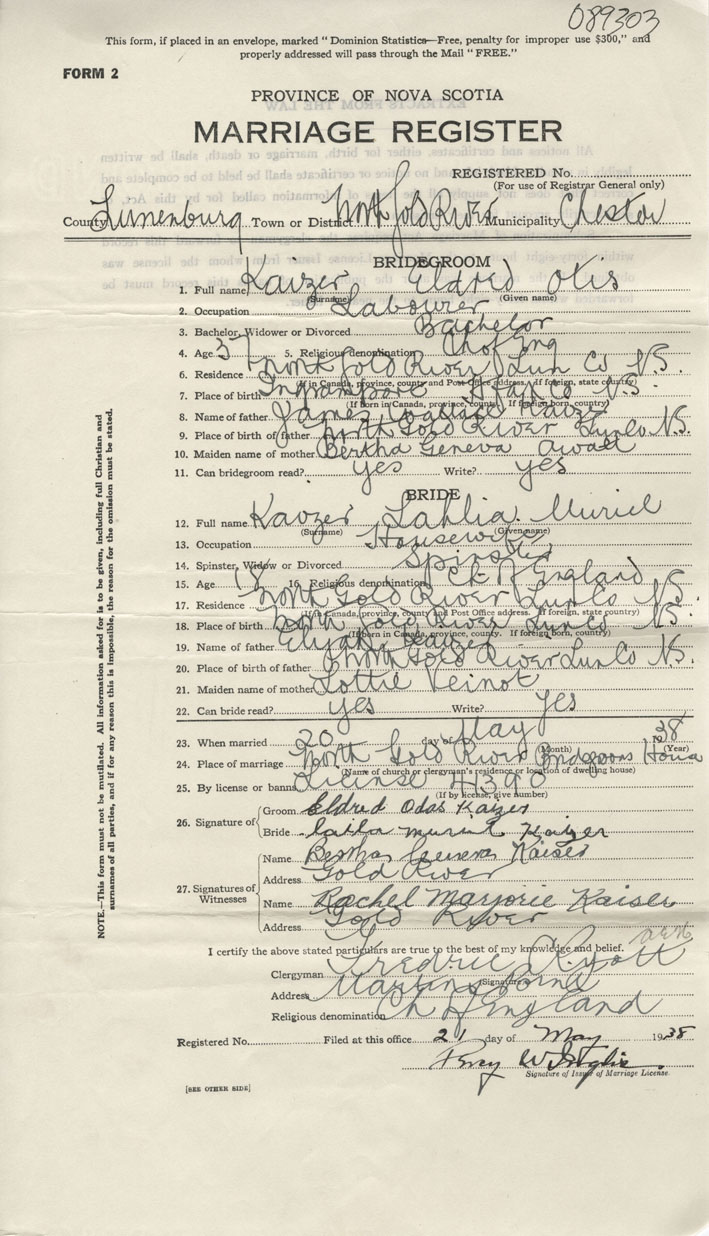 089303
This form, if placed in an envelope, marked "Dominion Statistics—Free, penalty for improper use $300," and
properly addressed will pass through the Mail "FREE."
FORM 2
PROVINCE OF NOVA SCOTIA
MARRIAGE REGISTER
REGISTERED No.
(For use of Registrar General only)
County Lunenburg Town or District North Gold River Municipality Chester
BRIDEGROOM
1. Full name Kaizer Eldred Otis
(Surname) (Given name)
2. Occupation Labourer
3. Bachelor, Widower or Divorced Bachelor
4. Age 5. Religious denomination Ch of Eng
6. Residence North Gold River Lun Co N.S.
(If in Canada, province, county and Post Office address. If foreign, state country)
7. Place of birth Ingramport Hfax Co N.S.
(If born in Canada, province, county. If foreign born, country)
8. Name of father James Wallace Kaizer
9. Place of birth of father North Gold River Lun Co N.S.
10. Maiden name of mother Bertha Geneva
11. Can bridegroom read? yes Write? yes
BRIDE
12. Full name Kaizer Lahlia Muriel
(Surname) (Given name)
13. Occupation Housewife
14. Spinster, Widow or Divorced Spinster
15. Age 18 16. Religious denomination Ch of England
17. Residence North Gold River Lun Co N.S.
(If in Canada, province, county and Post Office address. If foreign, state country)
18. Place of birth North Gold River Lun Co N.S.
(If born in Canada, province, county. If foreign born, country)
19. Name of father Elijah Kaizer
20. Place of birth of father North Gold River Lun Co N.S.
21. Maiden name of mother Lottie Veinot
22. Can bride read? yes Write? yes
23. When married 20 day of May 38
(Month) (Year)
24. Place of marriage North Gold River Bridegrooms Home
(Name of church or clergyman's residence or location of dwelling house)
25. By license or banns License H1390
(If by license, give number)
26. Signature of
Groom Eldred Odas Kaizer
Bride Laila Kaizer
27. Signatures of Witnesses
Name Bertha Geneva Kaiser
Address Gold River
Name Rachel Marjorie Kaiser
Address Gold River
I certify the above stated particulars are true to the best of my knowledge and belief.
Clergyman Fredric
(Signature)
Address Martins Point
Religious denomination Ch of England
Registered No. Filed at this office 21 day of May 1938
Percy W
Signature of Issuer of Marriage License.
[SEE OTHER SIDE]
NOTE.—This form must not be mutilated. All information asked for is to be given, including full Christian and
surnames of all parties, and if for any reason this is impossible, the reason for the omission must be stated.